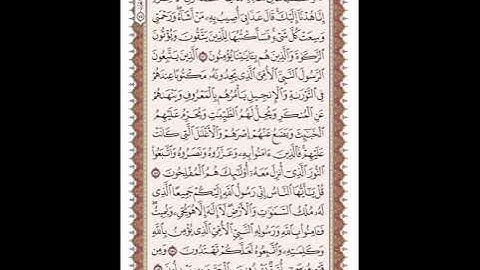 إِنَّا هُدْنَا إِلَيْكَ قَالَ عَذَابِي أُصِيبُ بِهِ مَنْ أَشَاءُ وَرَحْمَتِي
وَسِعَتْ كُلَّ شَيْءٍ فَسَأَكْتُبُهَا لِلَّذِينَ يَتَّقُونَ وَيُؤْتُونَ
الزَّكَوٰةَ وَالَّذِينَ هُم بِآيَاتِنَا يُؤْمِنُونَ الَّذِينَ يَتَّبِعُونَ
الرَّسُولَ النَّبِيَّ الْأُمِّيَّ الَّذِي يَجِدُونَهُ مَكْتُوبًا عِندَهُمْ
فِي التَّوْرَىٰةِ وَالْإِنجِيلِ يَأْمُرُهُم بِالْمَعْرُوفِ وَيَنْهَىٰهُمْ
عَنِ الْمُنكَرِ وَيُحِلُّ لَهُمُ الطَّيِّبَٰتِ وَيُحَرِّمُ عَلَيْهِمُ
الْخَبَٰٓئِثَ وَيَضَعُ عَنْهُمْ إِصْرَهُمْ وَالْأَغْلَٰلَ الَّتِي كَانَتْ
عَلَيْهِمْ فَالَّذِينَ ءَامَنُوا بِهِ وَعَزَّرُوهُ وَنَصَرُوهُ وَاتَّبَعُوا
النُّورَ الَّذِي أُنزِلَ مَعَهُ أُولَٰٓئِكَ هُمُ الْمُفْلِحُونَ
قُلْ يَٰٓأَيُّهَا النَّاسُ إِنِّي رَسُولُ اللَّهِ إِلَيْكُمْ جَمِيعًا الَّذِي
لَهُ مُلْكُ السَّمَٰوَٰتِ وَالْأَرْضِ لَا إِلَٰهَ إِلَّا هُوَ يُحْيِي وَيُمِيتُ
فَـَٔامِنُوا بِاللَّهِ وَرَسُولِهِ النَّبِيِّ الْأُمِّيِّ الَّذِي يُؤْمِنُ بِاللَّهِ
وَكَلِمَٰتِهِ وَاتَّبِعُوهُ لَعَلَّكُمْ تَهْتَدُونَ وَمِن